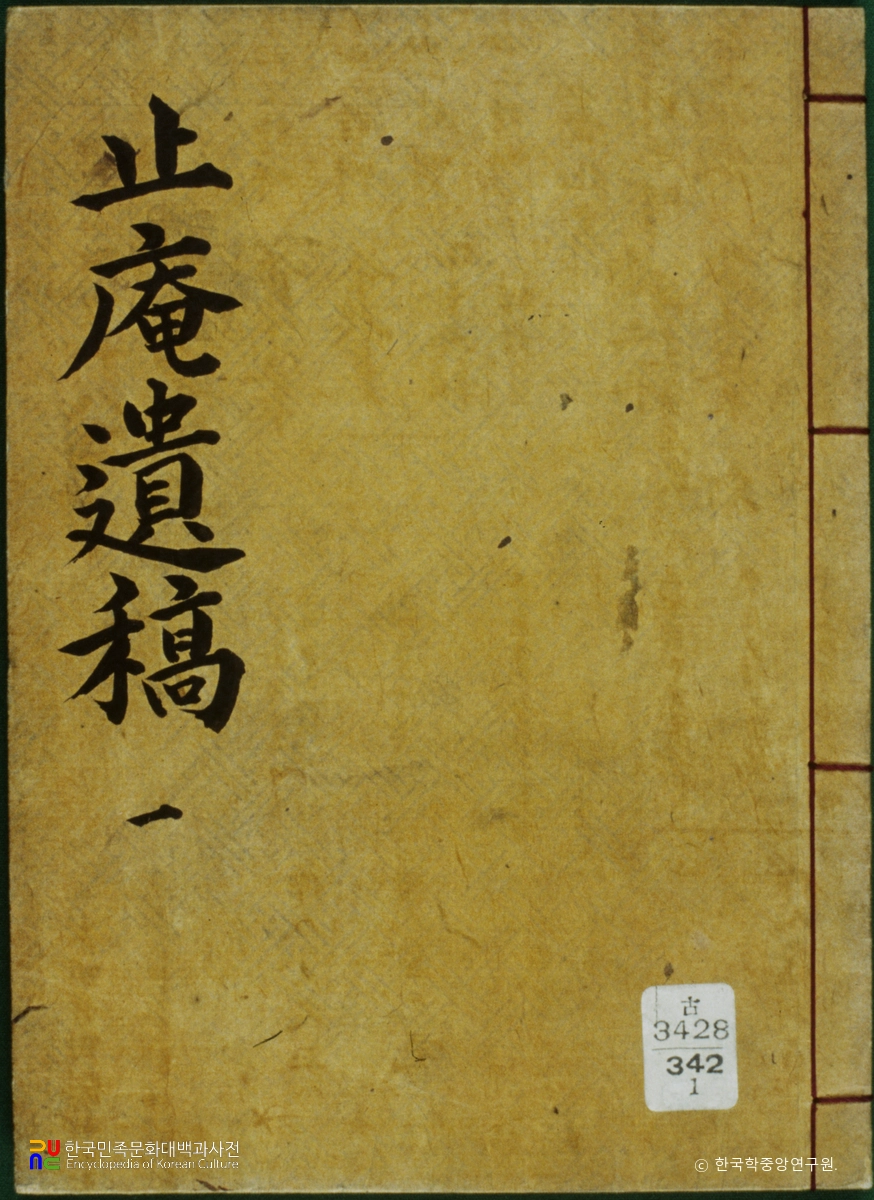 止庵遺稿 一
古
3428
342
1
한국민족문화대백과사전
Encyclopedia of Korean Culture
© 한국학중앙연구원.